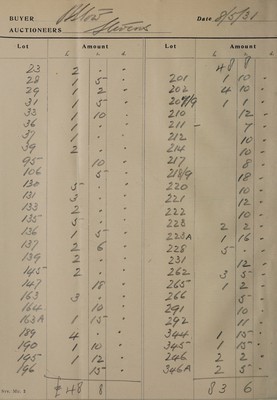 BUYER
AUCTIONEERS Stevens
Date 8/5/31
Lot Amount
£ s. d.
23 2 - -
28 1 5 -
29 1 2 -
31 1 5 -
33 1 10 -
36 1 - -
37 1 - -
39 2 - -
95 10 -
106 5 -
130 5 - -
131 3 - -
133 2 - -
135 5 - -
136 1 5 -
137 2 6 -
139 2 - -
145 2 - -
147 18 -
163 3 - -
164 10 -
163A 1 15 -
189 4 - -
190 1 10 -
195 1 12 -
196 15 -
£48 8
Lot Amount
£ s. d.
48 8 -
201 1 10 -
202 4 10 -
207/9 1 1 -
210 12 -
211 - 7 -
212 10 -
214 10 -
217 8 -
218/9 18 -
220 10 -
221 12 -
222 10 -
223 2 2 -
223A 1 16 -
228 5 - -
231 12 -
262 3 5 -
265 1 2 -
266 5 -
291 10 -
292 11 -
344 1 15 -
345 1 15 -
246 2 2 -
346A 2 5 -
83 6